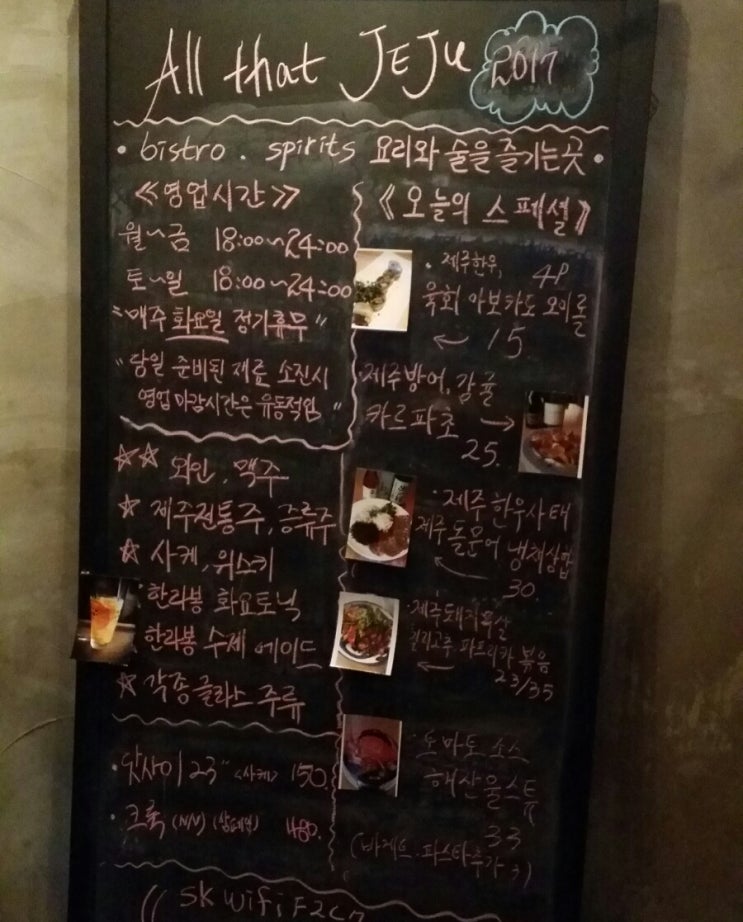 All that JEJU 2017
• bistro . spirits 요리와 술을 즐기는 곳 •
《영업시간》
월~금 18:00~24:00
토~일 18:00~24:00
"매주 화요일 정기휴무"
"당일 준비된 재료 소진시
영업마감시간은 유동적임"
☆☆ 와인, 맥주
☆ 제주전통주, 증류주
☆ 사케, 위스키
• 한라봉 화요토닉
• 한라봉 수제 에이드
☆ 각종 글라스 주류
• 앗사이 23" <사케> 150.
• 크룩 (NV) (샴페인) 480.
《오늘의 스페셜》
• 제주한우, 4P
육회 아보카도 오이롤
← 15.
• 제주방어, 감귤
카르파초 →
25.
• 제주 한우사태
제주돌문어 냉채삼합
← 30.
• 제주돼지목살
칠리고추 파프리카 볶음
← 23/35
• 토마토 소스
해산물스튜
33
(바게트. 파스타추가 3)
SK wifi F2C